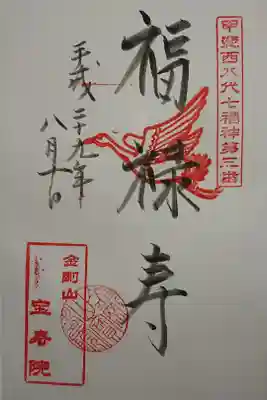 甲斐西八代七福神第三番
福禄寿
平成二十九年
八月十日
金剛山
宝寿院